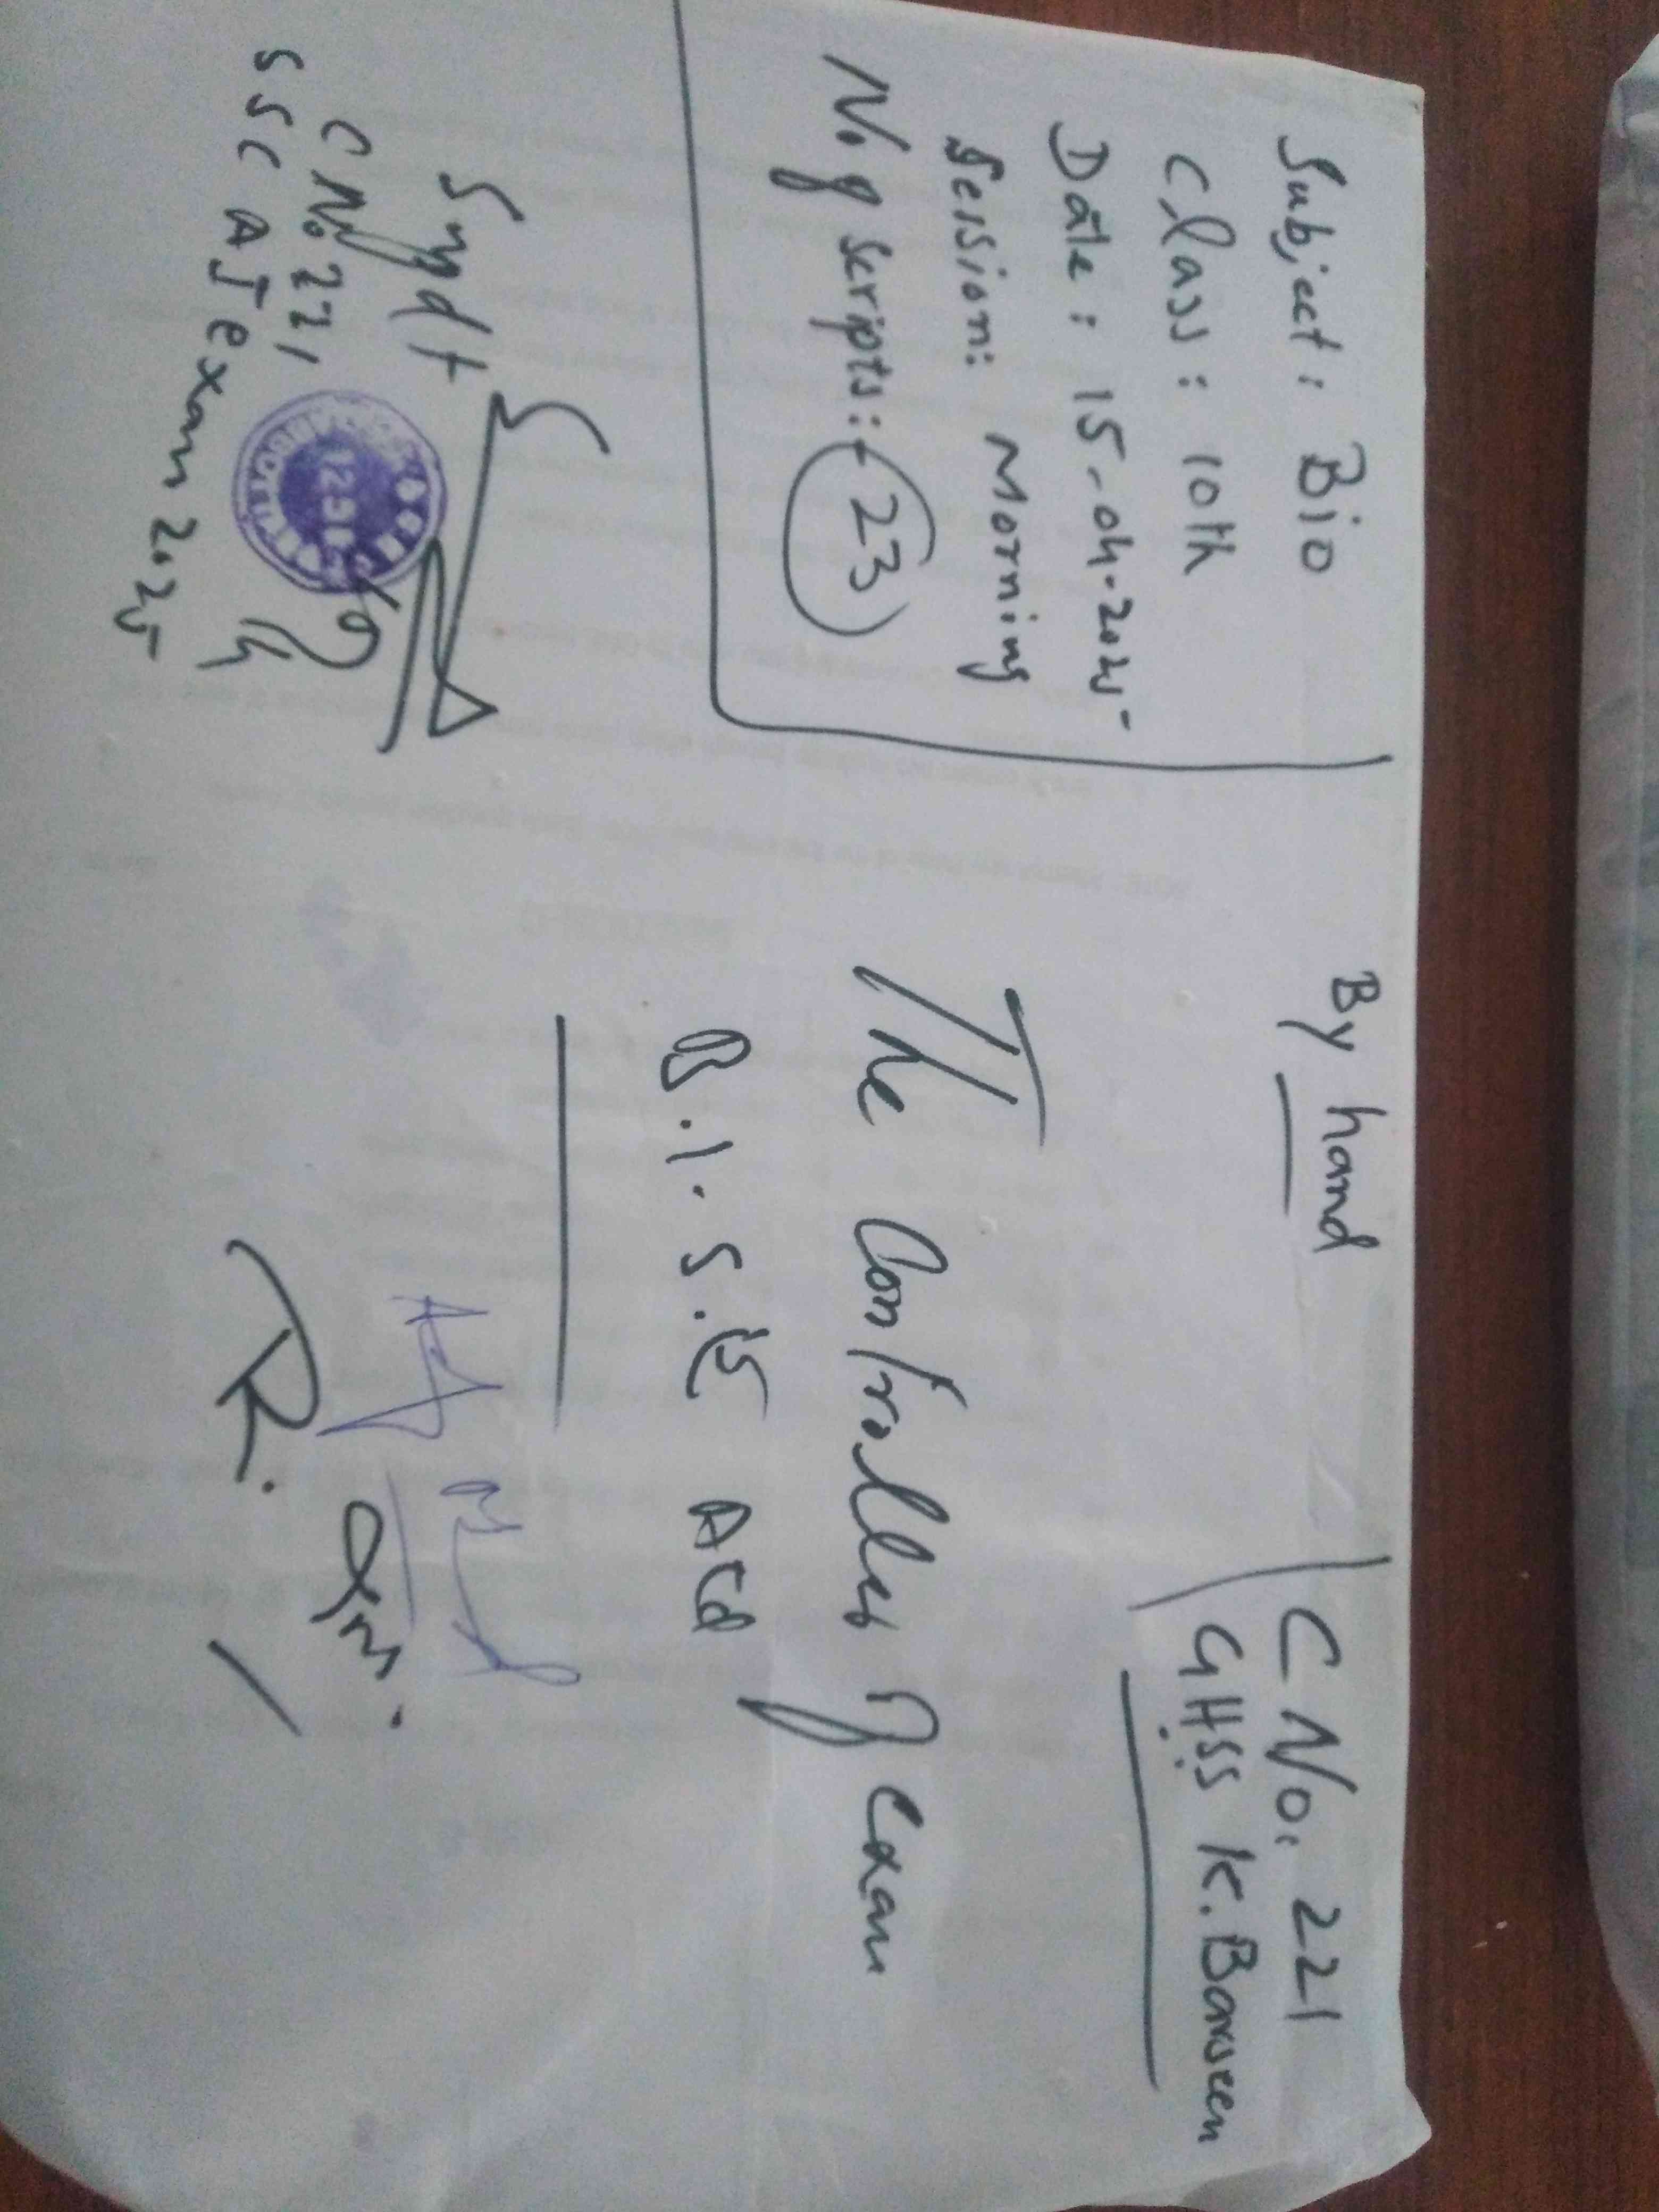 Subject: Bio
Class: 10th
Date: 15-04-2025
Session: Morning
No of Scripts: 23
By hand
C No. 221
GHSS K. Barween
The Controller of Exam
B.I.S.E ATd
Supdt
C No 221,
SSC A I exam 2025